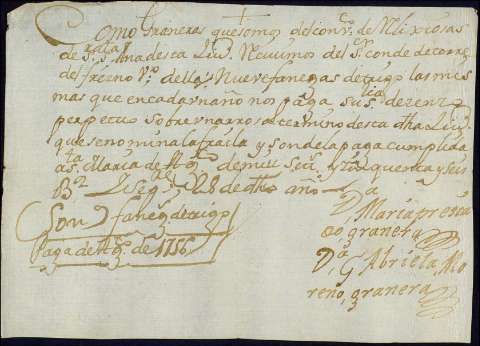 Como graneras que somos del conv.to de Relixiosas
de s.ta Ana desta Ciu.d Recivimos del s.r conde de torre
del fresno V.º de ella Nueve fanegas de trigo las mis
mas que en cada un año nos paga su s.ria de zenso
perpetuo sobre
termino desta dha Ciu.d
que se nomina la frayla y son de la paga cumplida
a s.ta Maria de Ag.to de mill set.s y zinquenta y seis
y 28 de dho año
Son 9 faneg.s de trigo
Paga de Ag.to de 1756
D.a Maria
granera
D.a Gabriela Mo
reno, granera